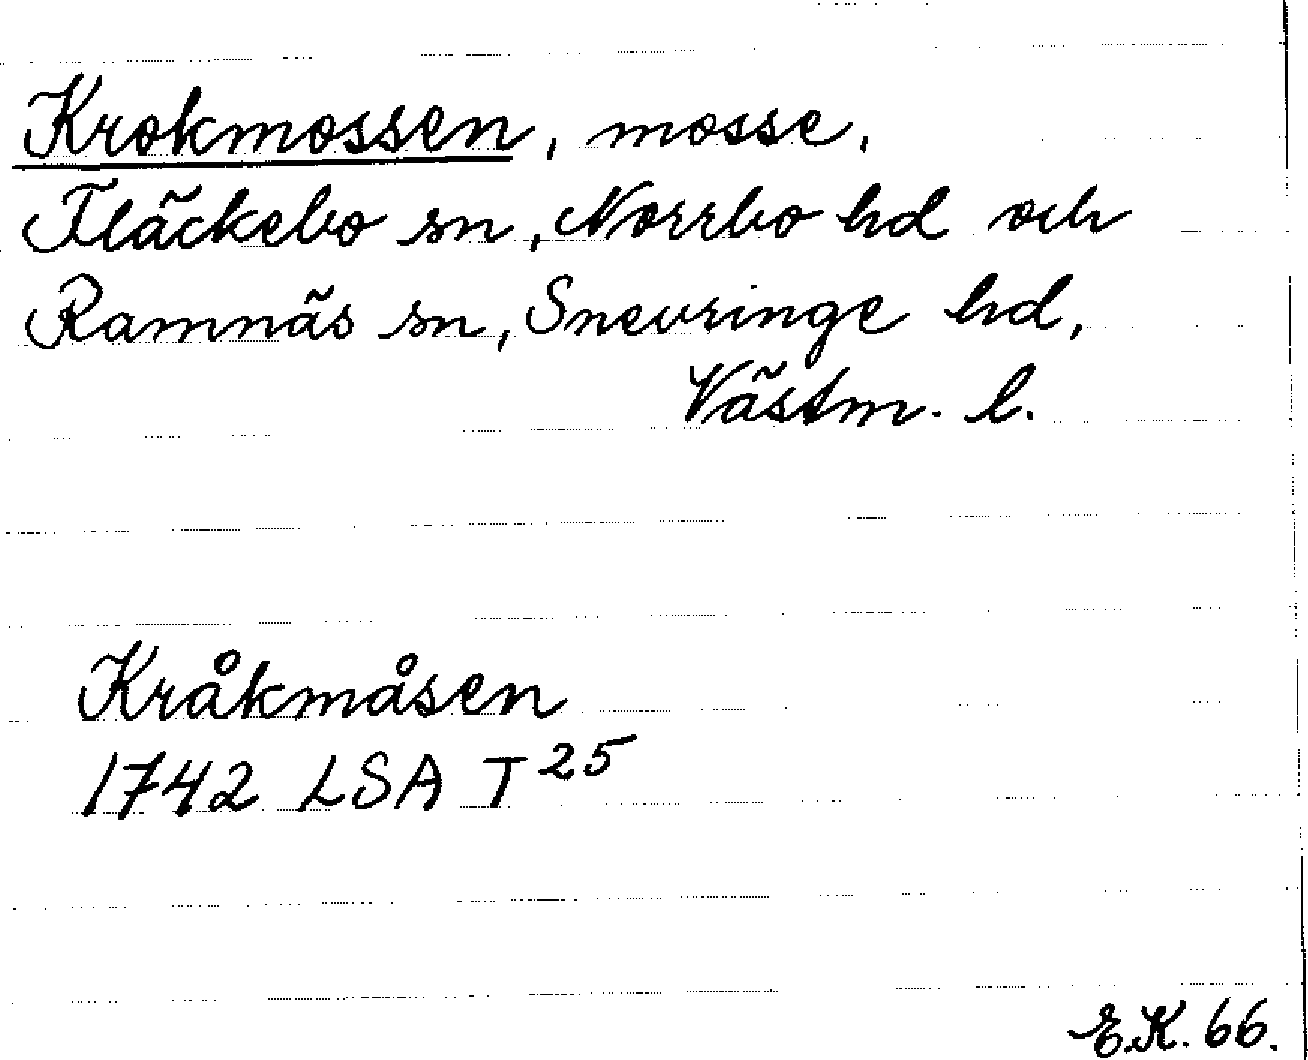 Krokmossen, mosse,
Fläckebo sn, Norrbo hd och
Ramnäs sn, Snevringe hd,
Västm. l.
Kråkmåsen
1742 LSA T 25
E.K. 66.